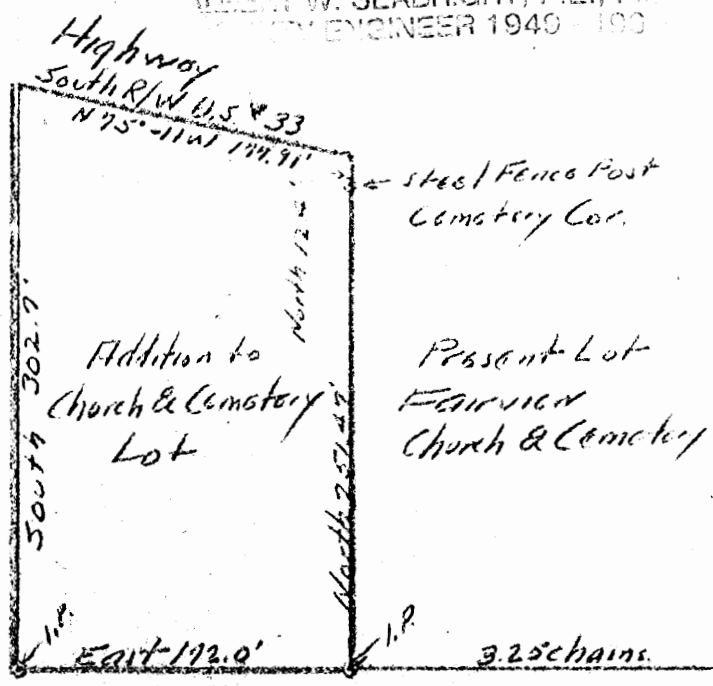 W. SEABRIGHT,
ENGINEER 1940
Highway
South R/W U.S. # 33
N 75°-11W 177.91'
← Steel Fence Post
Cemetery Cor.
North 12.4'
South 302.7'
Addition to
Church & Cemetery
Lot
Present Lot
Fairview
Church & Cemetery
North
I.P.
I.P.
East 172.0'
3.25 chains.